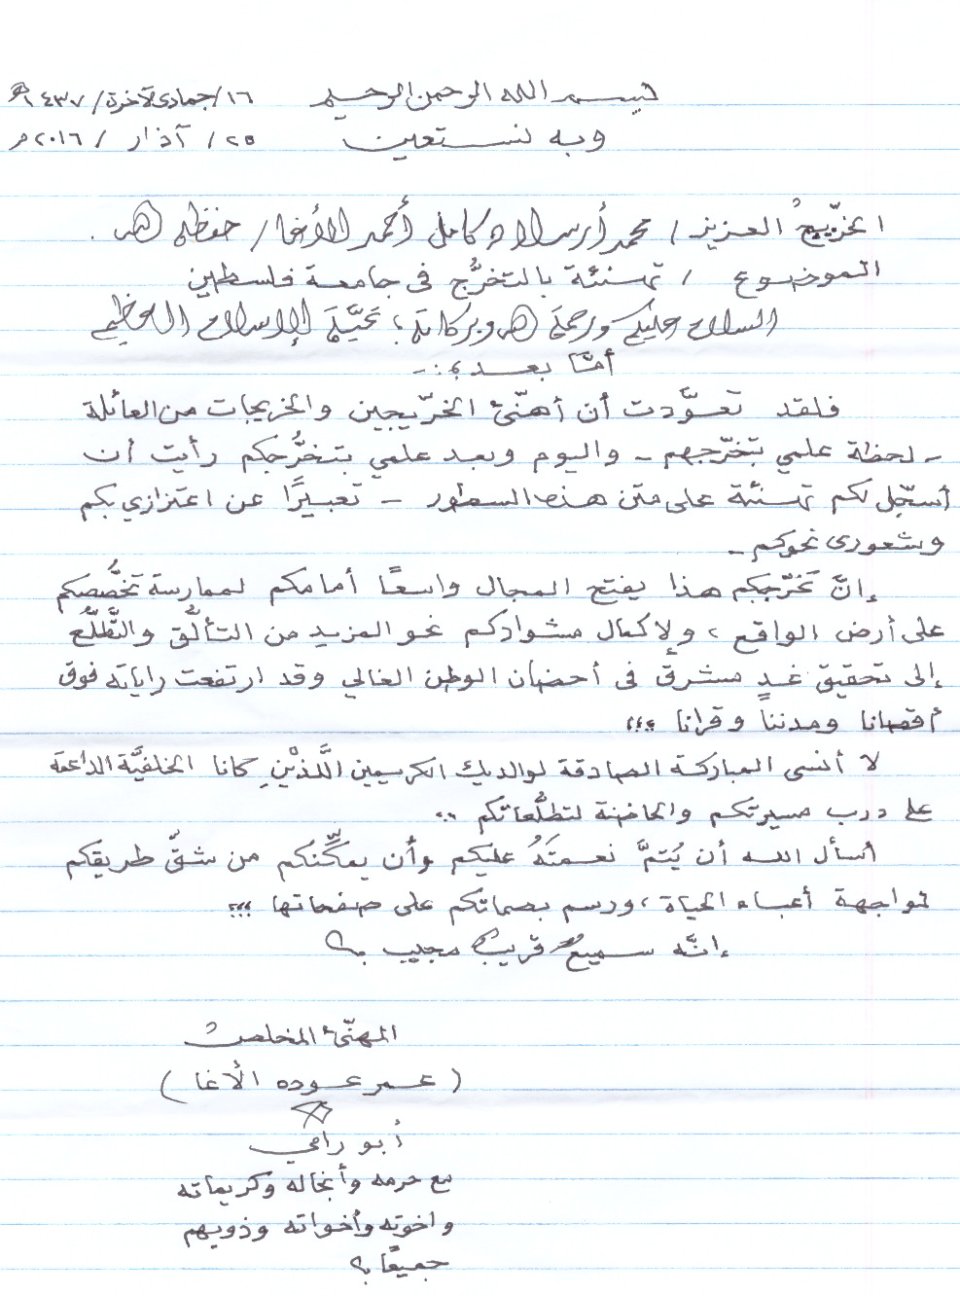 بسم الله الرحمن الرحيم ١٦/جمادى الآخرة/١٤٣٧هـ
وبه نستعين ٢٥/ آذار / ٢٠١٦م
الخرّيجُ العزيز / محمد أرسلان كامل أحمد الأغا / حفظه الله .
الموضوع / تهنئة بالتخرُّج في جامعة فلسطين
السلام عليكم ورحمة الله وبركاته ؛ تحيَّة الإسلام العظيم
أمَّا بعد ؛ :-
فلقد تعوَّدت أن أهنّئ الخرّيجين والخريجات من العائلة
- لحظة علمي بتخرّجهم - واليوم وبعد علمي بتخرُّجكم رأيت أن
أسجّل لكم تهنئة على متن هذه السطور - تعبيرًا عن اعتزازي بكم
وشعوري نحوكم -
إنَّ تَخَرّجكم هذا يفتح المجال واسعًا أمامكم لممارسة تخصُّصكم
على أرض الواقع ، ولإكمال مشواركم نحو المزيد من التألُّق والتَّطلُّع
إلى تحقيق غدٍ مشرق في أحضان الوطن الغالي وقد ارتفعت راياته فوق
أقصانا ومدننا وقرانا ؛؛؛
لا أنسى المباركة الصادقة لوالديك الكريمين اللَّذيْنِ كانا الخلفيَّة الداعمة
على درب مسيرتكم والحاضنة لتطلُّعاتكم ..
أسأل الله أن يُتمَّ نعمتَهُ عليكم وأن يمكِّنَكم من شقّ طريقكم
لمواجهة أعباء الحياة ، ورسم بصماتكم على صفحاتها ؛؛؛
إنَّه سميعٌ قريبٌ مجيب ؛
المهنّئ المخلصُ
( عمر عوده الأغا )
أبو رامي
مع حرمه وأنجاله وكريماته
واخوته وأخواته وذويهم
جميعًا ؛